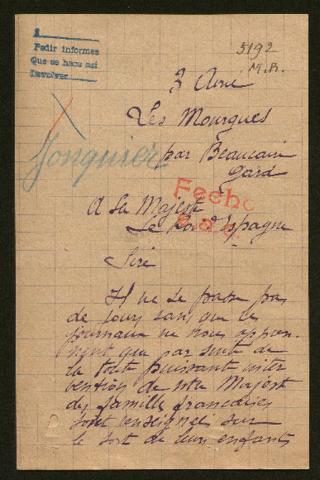 Pedir informes
Que se haga así
Devolver
5192
M.R.
3 Avril
Les Mourgues
par Beaucaire
Gard
Jonquier
Fecho
A Sa Majesté
Le Roi d'Espagne
Sire
Il ne se passe pas
de jours sans que les
journaux ne nous appren
nent que par suite de
la toute puissante inter
vention de votre Majesté
des familles françaises
sont renseignées sur
le sort de leurs enfants